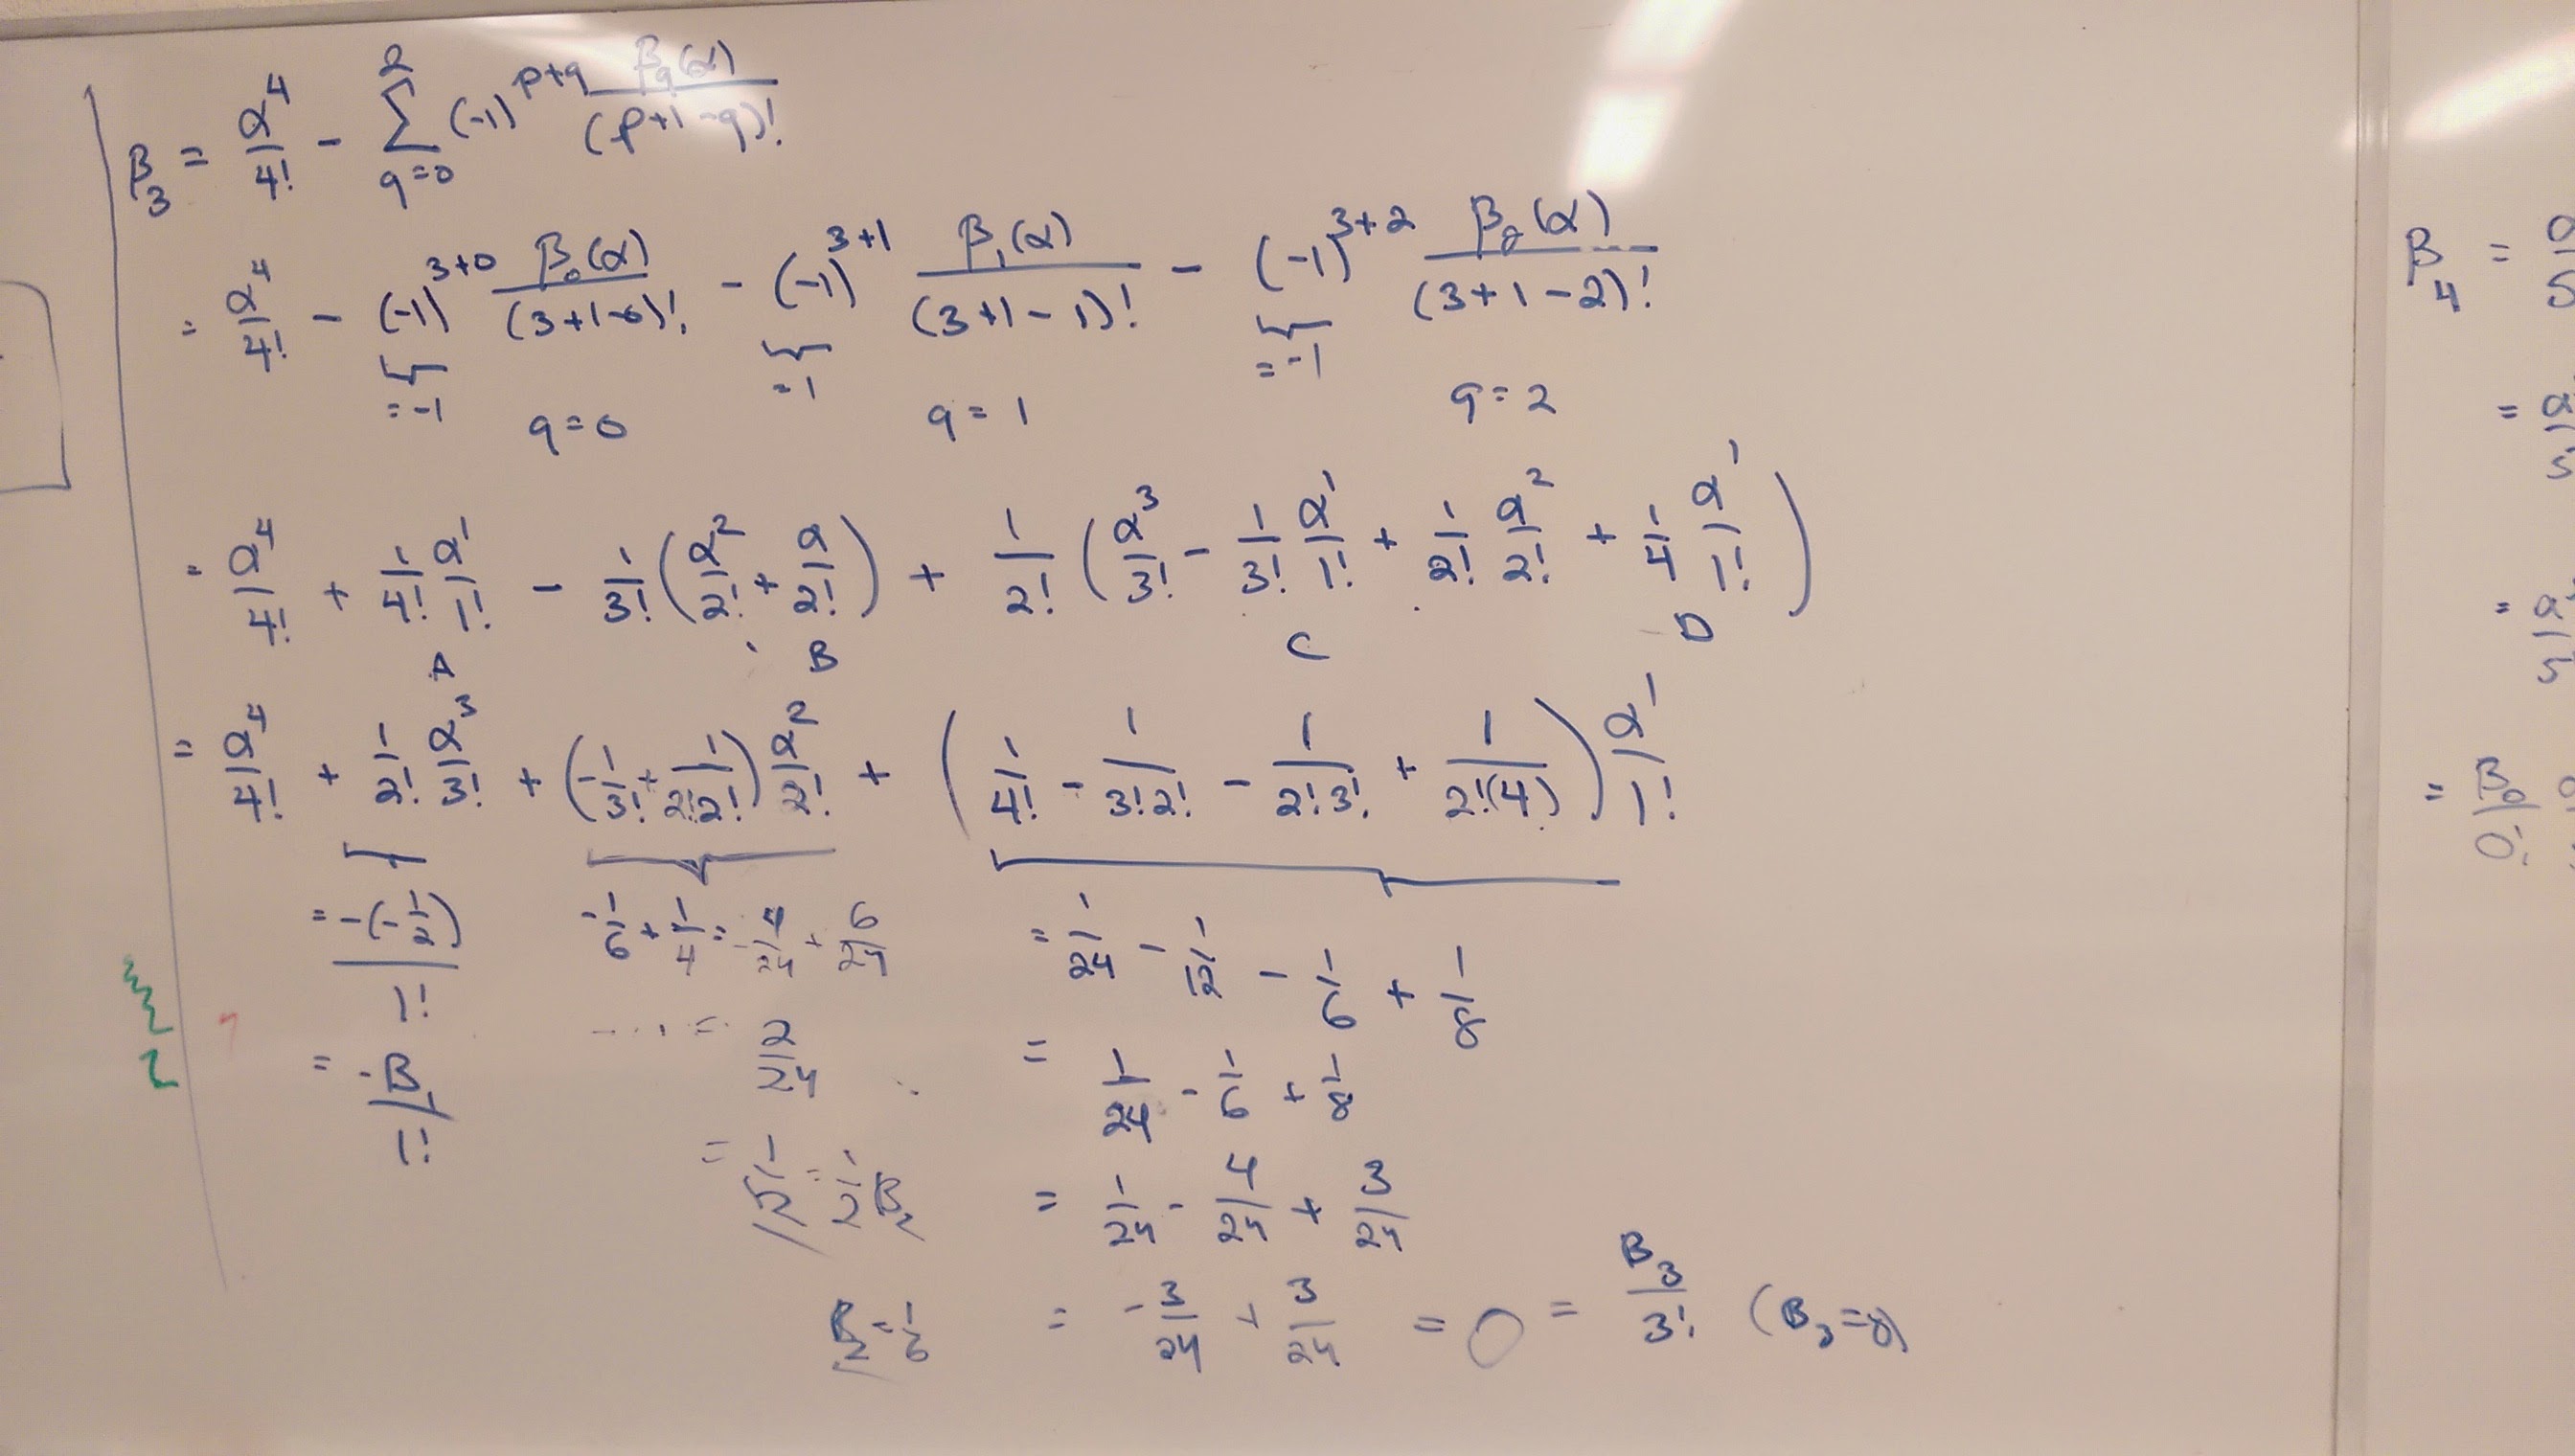 β₃ = α⁴/4! - Σ_{q=0}^{2} (-1)^{p+q} β_q(α)/(p+1-q)!
= α⁴/4! - (-1)^{3+0} β₀(α)/(3+1-0)! - (-1)^{3+1} β₁(α)/(3+1-1)! - (-1)^{3+2} β₂(α)/(3+1-2)!
=-1 =1 =-1
q=0 q=1 q=2
= α⁴/4! + 1/4! α¹/1! - 1/3! (α²/2! + α/2!) + 1/2! (α³/3! - 1/3! α¹/1! + 1/2! α²/2! + 1/4 α¹/1!)
A B C D
= α⁴/4! + 1/2! α³/3! + (-1/3! + 1/2!2!) α²/2! + (1/4! - 1/3!2! - 1/2!3! + 1/2!(4)) α¹/1!
= -(-1/2)/1! -1/6 + 1/4 = -4/24 + 6/24 = 1/24 - 1/12 - 1/6 + 1/8
= -B₁/1! .... = 2/24 = 1/24 - 1/6 + 1/8
= 1/12 = 1/2 B₂ = 1/24 - 4/24 + 3/24
B₂ = 1/6 = -3/24 + 3/24 = 0 = B₃/3! (B₃=0)
β₄ =
=
=
= B₀/0!